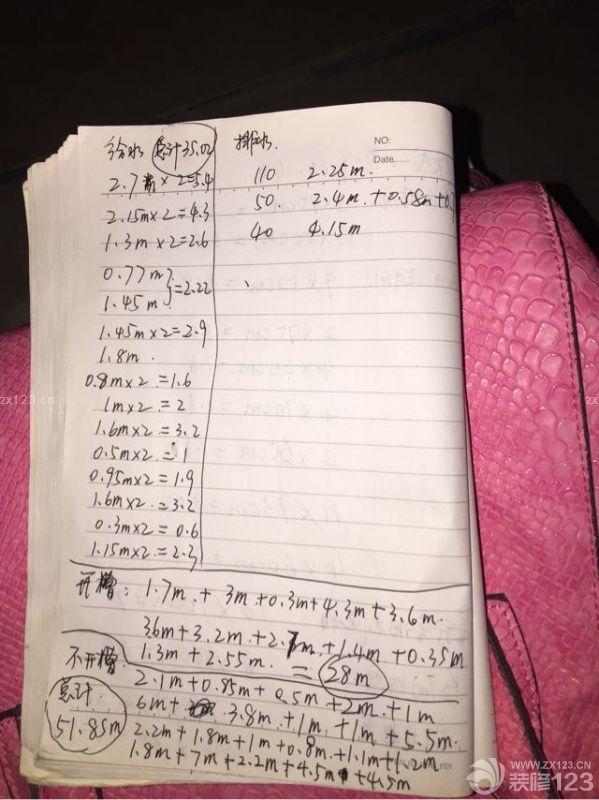 给水 总计35.02
2.7 × 2=5.4
2.15m×2=4.3
1.3m×2=2.6
0.77m
1.45m }=2.22
1.45m×2=2.9
1.8m.
0.8m×2=1.6
1m×2=2
1.6m×2=3.2
0.5m×2=1
0.95m×2=1.9
1.6m×2=3.2
0.3m×2=0.6
1.15m×2=2.3
排水
NO:
Date......
110 2.25m.
50. 2.4m.+0.58m+
40 4.15m
开槽: 1.7m.+3m+0.3m+4.3m+3.6m.
3.6m+3.2m+2.7m.+1.4m+0.35m
1.3m+2.55m. = 28m
不开槽:
总计: 51.85m
2.1m+0.85m+0.5m+2m+1m
6m+ 3.8m+1m+1m+5.5m.
2.2m+1.8m+1m+0.8m+1.1m+1.2m
1.8m+7m+2.2m+4.5m+4.5m
zx123.cn
WWW.ZX123.CN
装修123